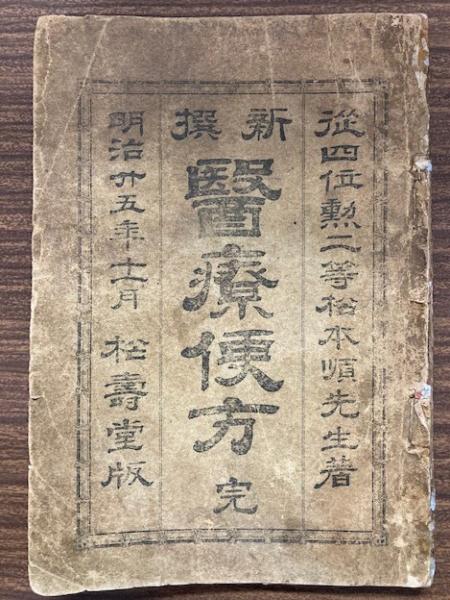 從四位勲二等松本順先生著
新撰
醫療便方 完
明治廿五年十一月 松壽堂版